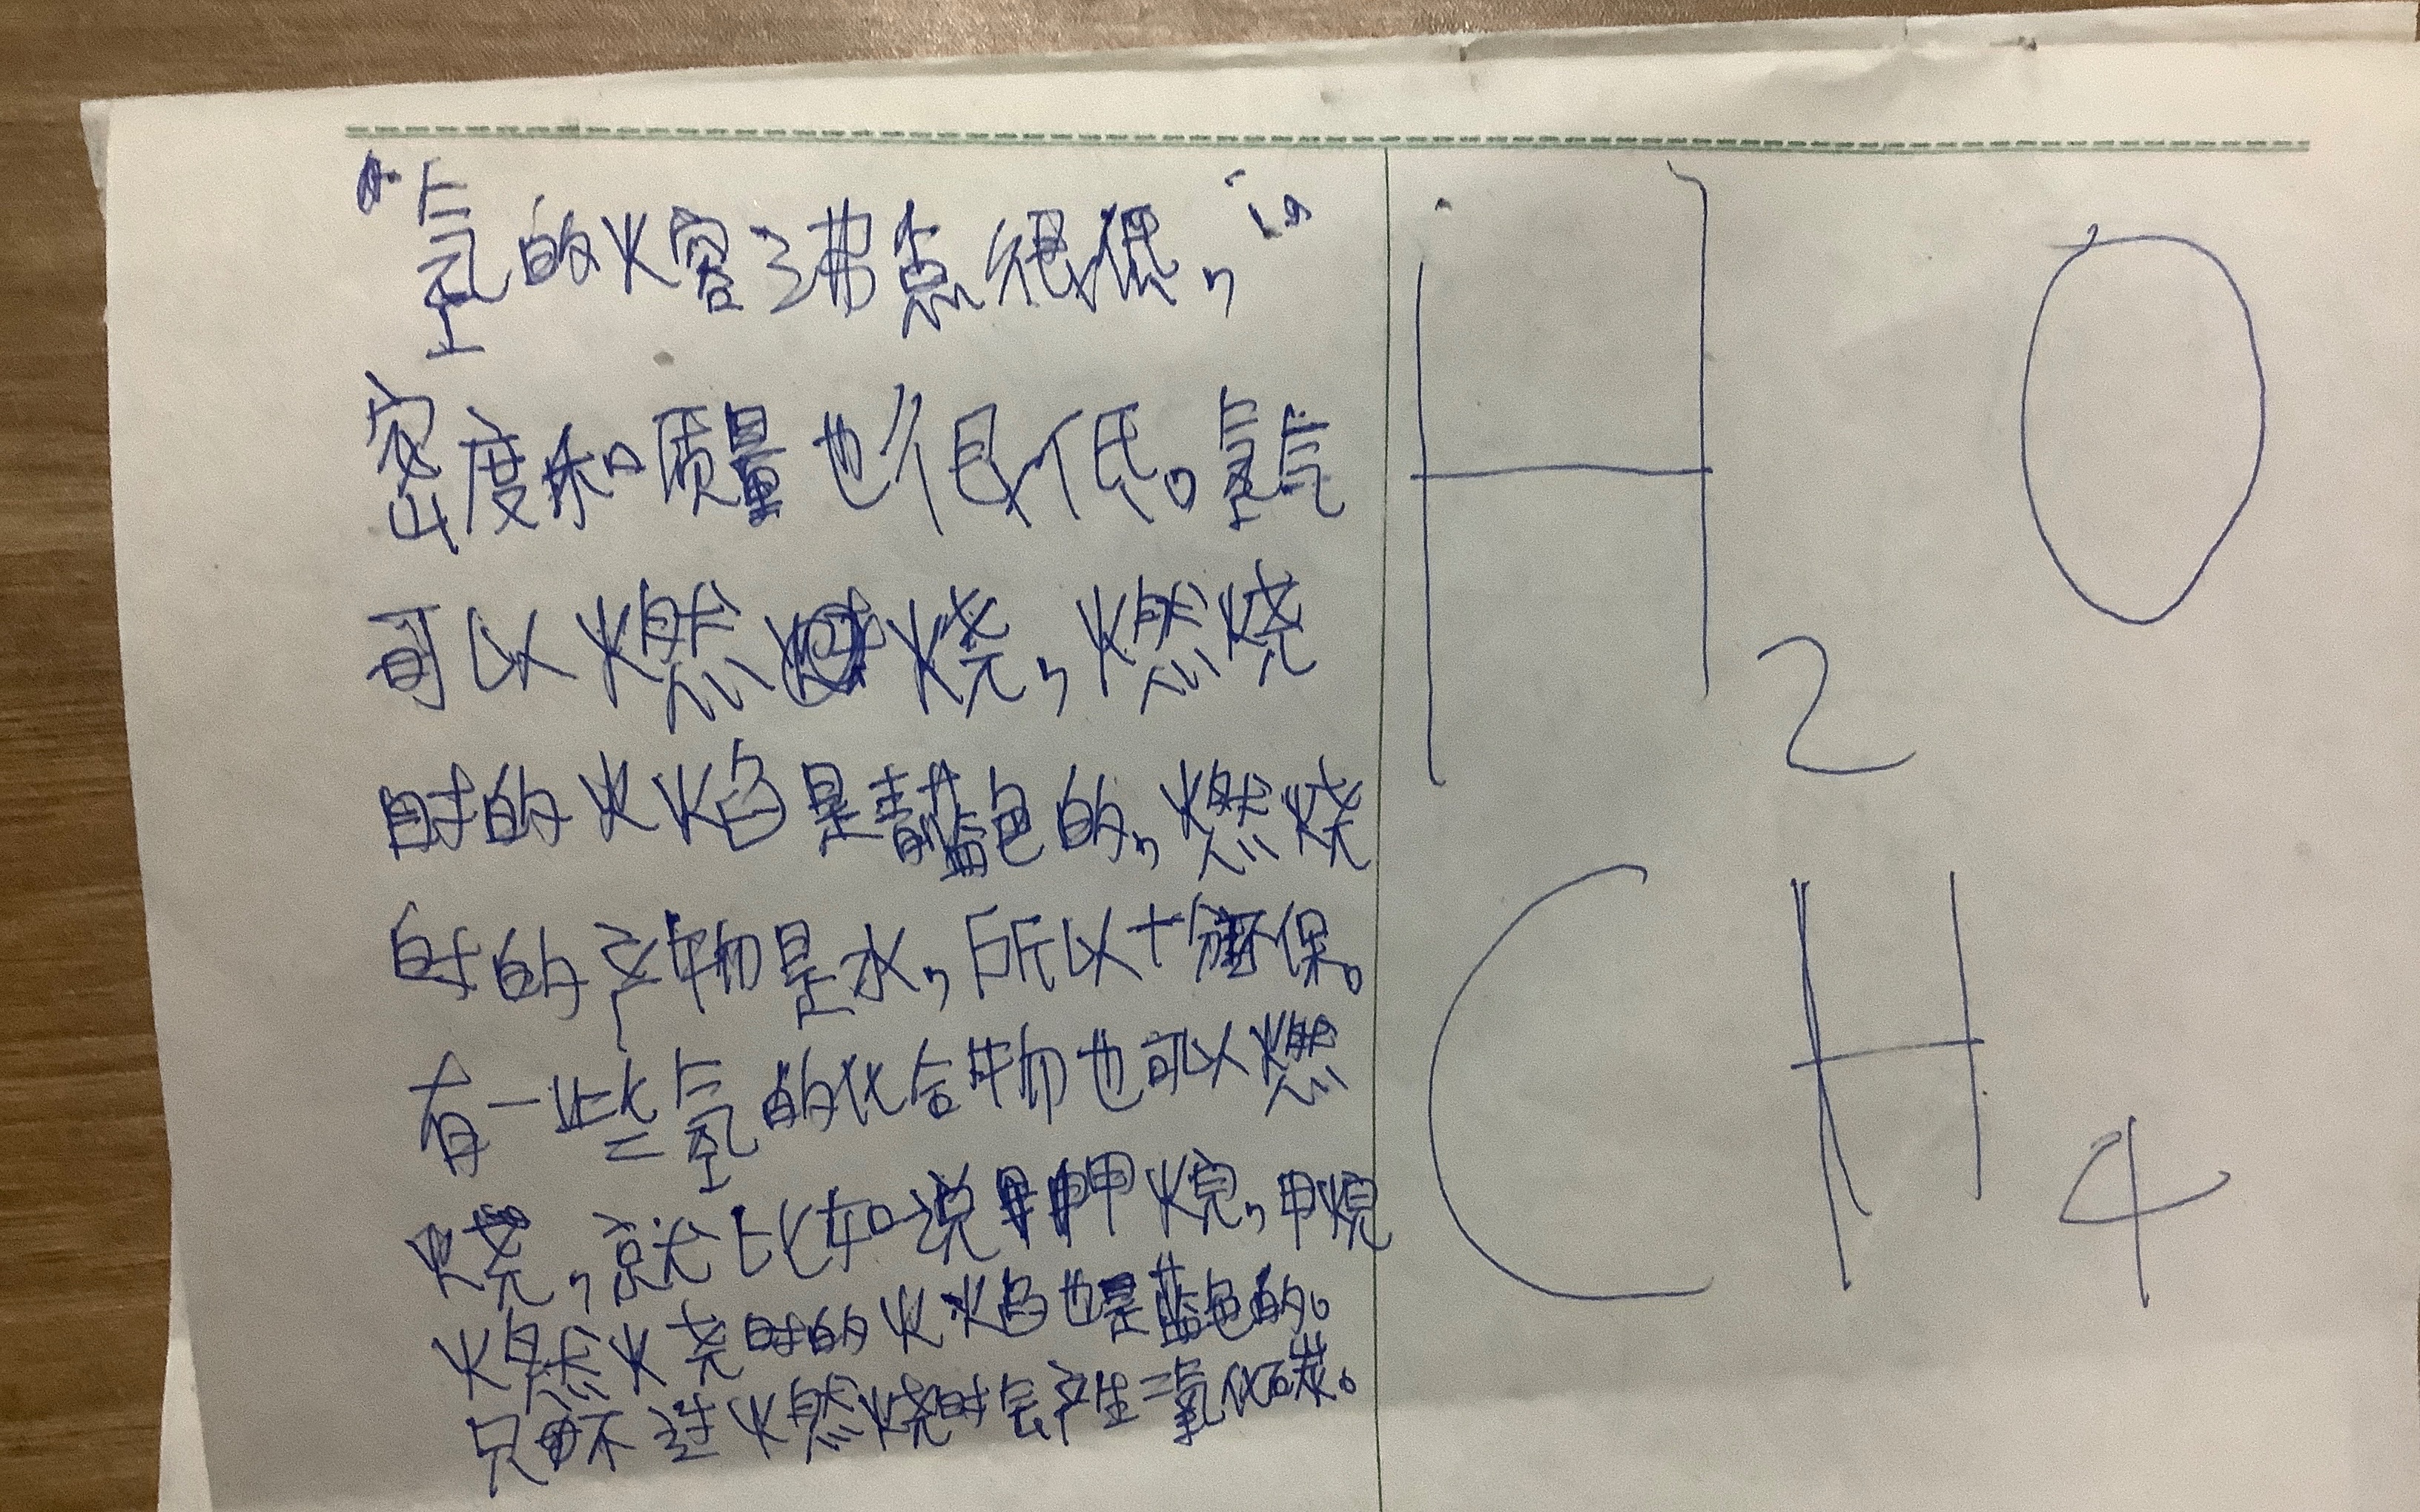 “氢的熔沸点很低，”
密度和质量也很低。氢气
可以燃烧，燃烧
时的火焰是青蓝色的，燃烧
时的产物是水，所以十分环保。
有一些氢的化合物也可以燃
烧，就比如说甲烷，甲烷
燃烧时的火焰也是蓝色的。
只不过燃烧时会产生二氧化碳。
H2O
CH4